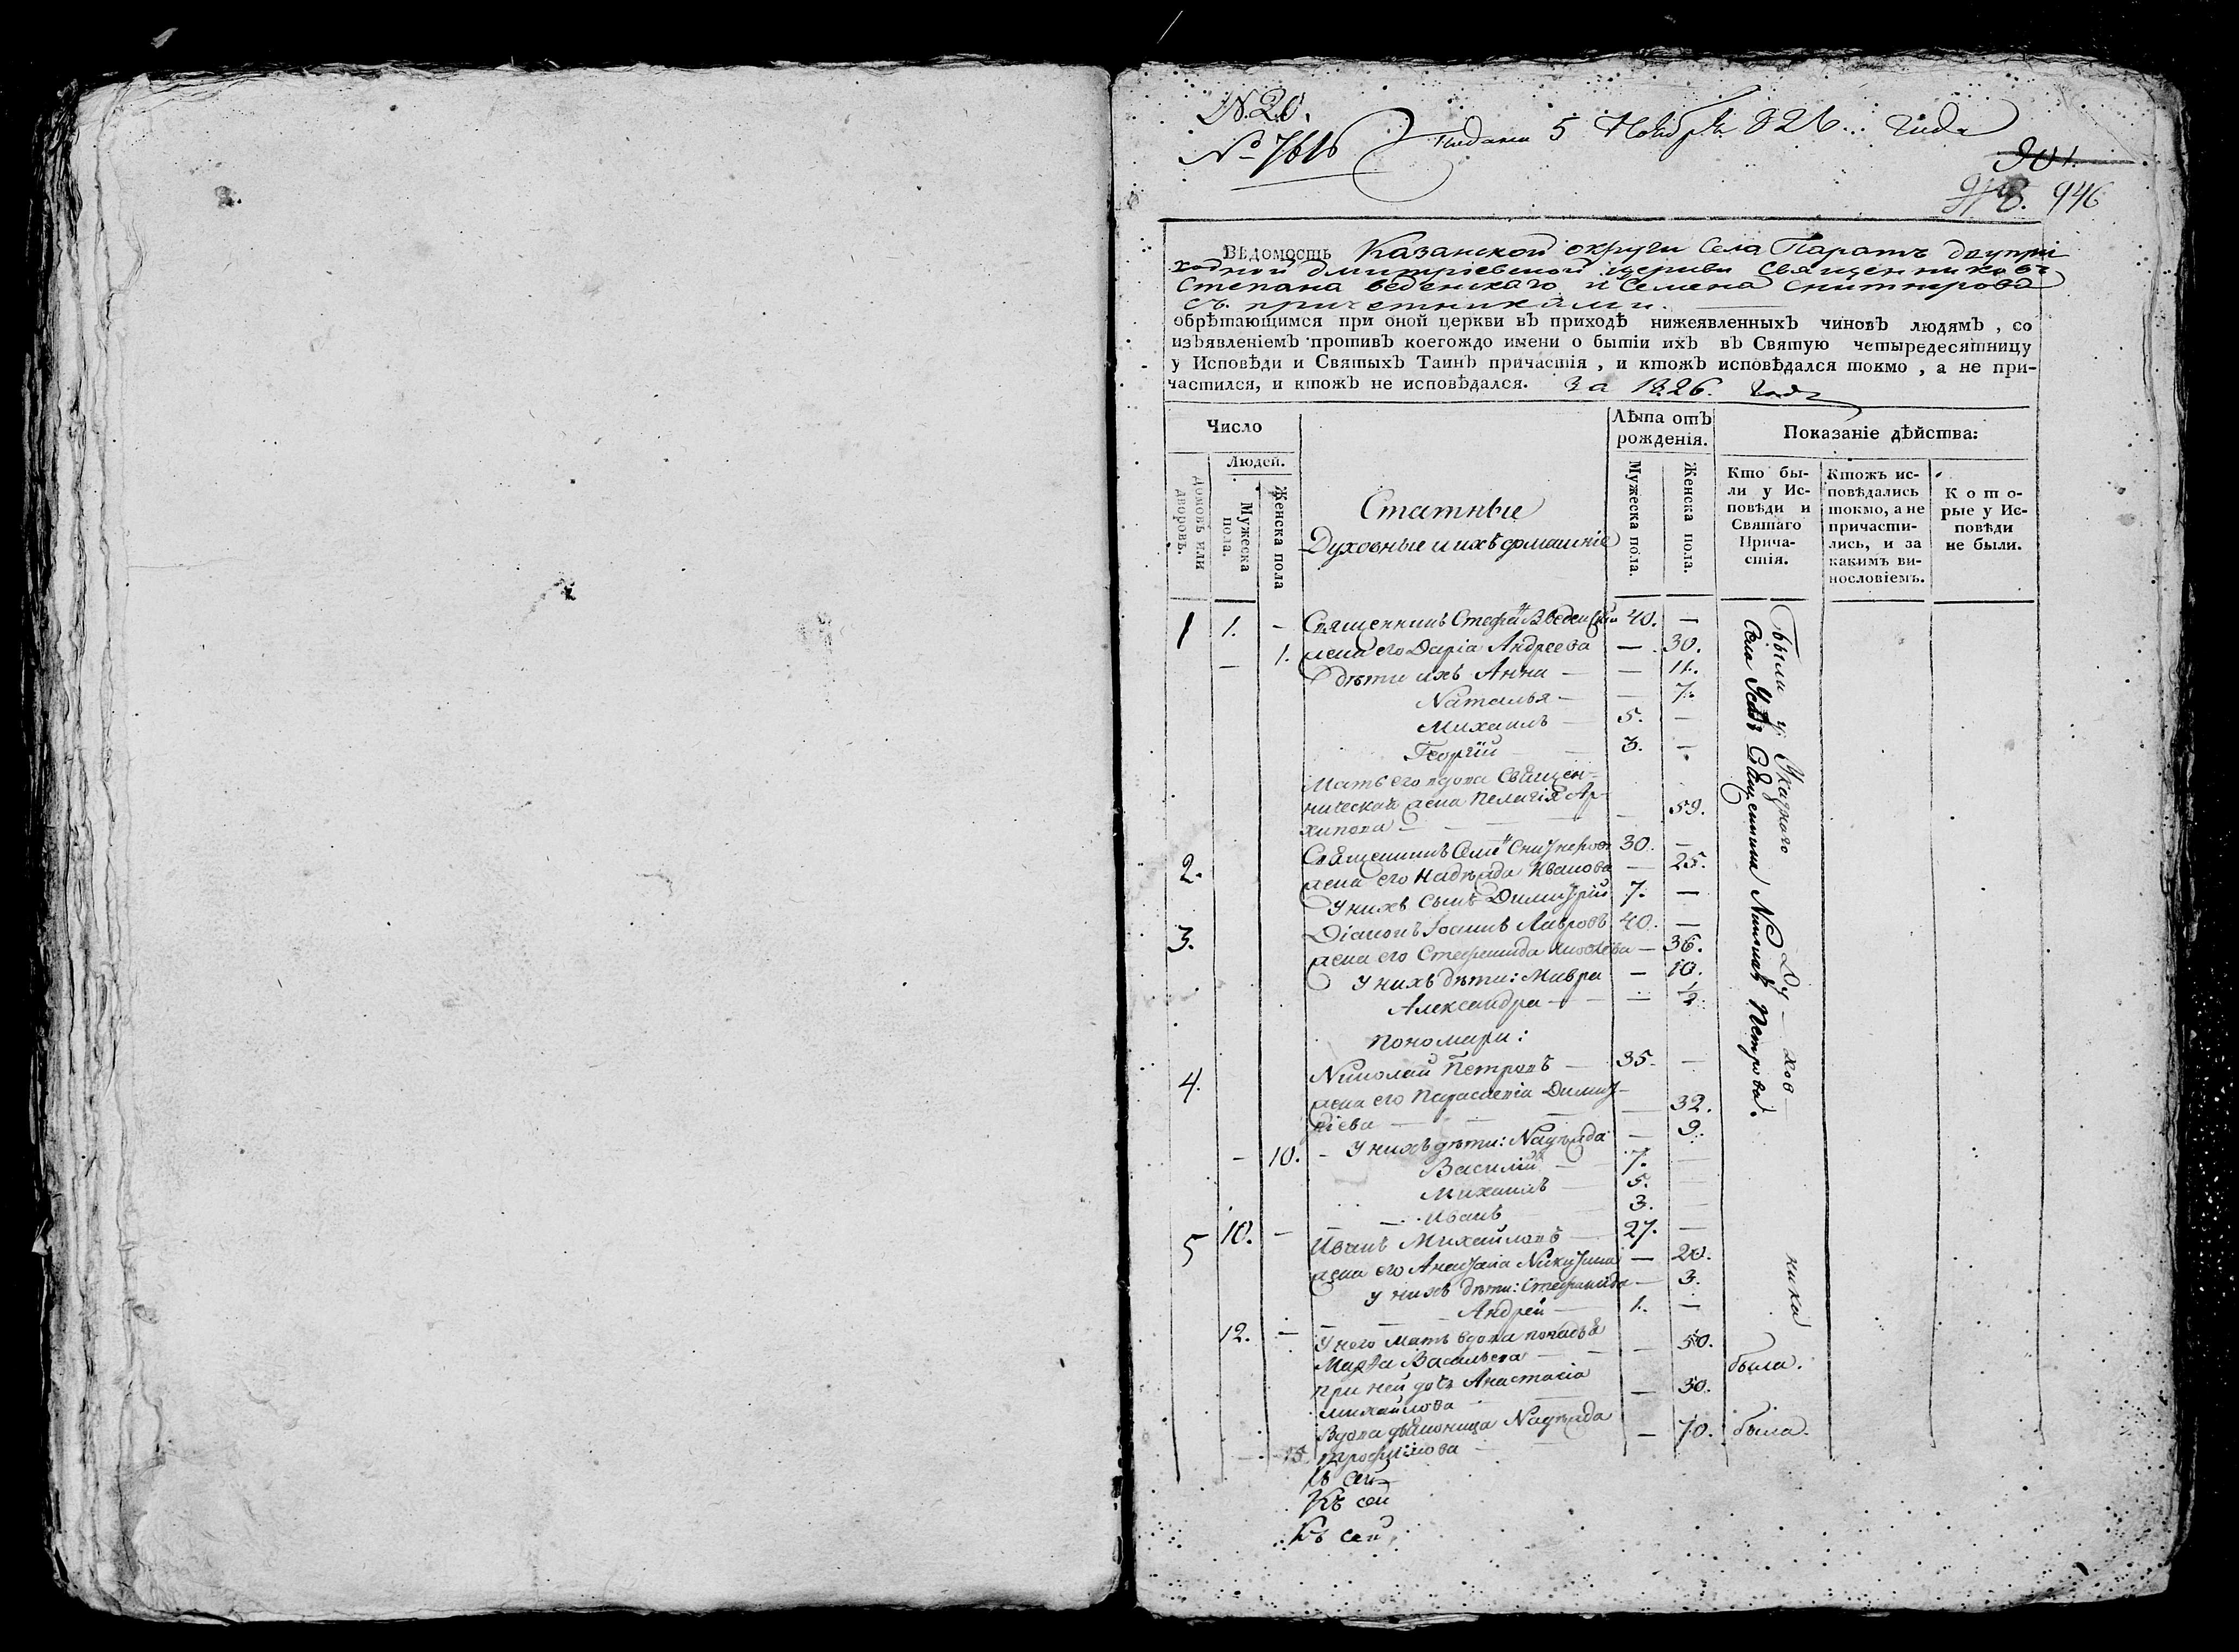 N. 20.
№ 7616 Подана 5 Ноября 826 года
901.
946
ВѢдомость Казанской округи Села Паратъ двупри
ходной дмитріевской церкви священниковъ
Степана веденскаго и Семена снитнерова
съ причетниками.
обрѢтающимся при оной церкви вЪ приходѢ нижеявленныхЪ чиновЪ людямЪ , со
изЪявленіемЪ противЪ коегождо имени о бытіи ихЪ вЪ Святую четыредесятницу
у ИсповѢди и СвятыхЪ ТаинЪ причастія , и ктожЪ исповѢдался токмо , а не при-
частился, и ктожЪ не исповѢдался. За 1826. годъ
Число
Людей.
ДомовЪ или дворовЪ.
Мужеска пола.
Женска пола
Статные
Духовные и ихъ домашніе
ЛѢта отЪ рожденія.
Мужеска пола.
Женска пола.
Показаніе дѢйства:
Кто бы-
ли у Ис-
повѢди и
Святаго
Прича-
стія.
КтожЪ ис-
повѢдались
токмо, а не
причасти-
лись, и за
какимЪ ви-
нословіемЪ.
К о т о-
рые у Ис-
повѢди
не были.
1 1. - Священникъ Стефанъ Введенскій 40. —
— 1. жена его Дарія Андреева — 30.
дѣти ихъ Анна — — 11.
Наталья — — 7.
Михаилъ — 5. —
Георгій — 3. —
Мать его вдова Священ=
ническая жена Пелагія Ар-
хипова — 59.
2. Священникъ Семенъ Снитнеровъ 30. —
жена его Надѣжда Иванова — 25.
У нихъ сынъ Димитрій 7. —
3. Діаконъ Іоаннъ Лавровъ 40. —
жена его Стефанида Яковлева — 36.
У нихъ дѣти: Мавра — 10.
Александра — — 1/2
Пономари:
4. Николай Петровъ — 35. —
жена его Параскевія Димит-
ріева — — 32.
- 10. - У нихъ дѣти: Надѣжда — 9.
Василій — 7. —
Михаилъ — 5. —
Иванъ 3. —
5 10. — Иванъ Михайловъ — 27. —
жена его Анастасія Никитина — 20.
у нихъ дѣти: Стефанида — 3.
Андрей — 1. —
12. — У него мать вдова попадья
Марѳа Васильева — — 50. была.
при ней дочь Анастасія
михайлова — 30.
Вдова дьяконица Надѣжда
15. Трофимова — 70. была.
Къ сей
Къ сей
Къ сей
Были у Указнаго Ду — хов — ника
Села Усадъ Священника Никиты Петрова.